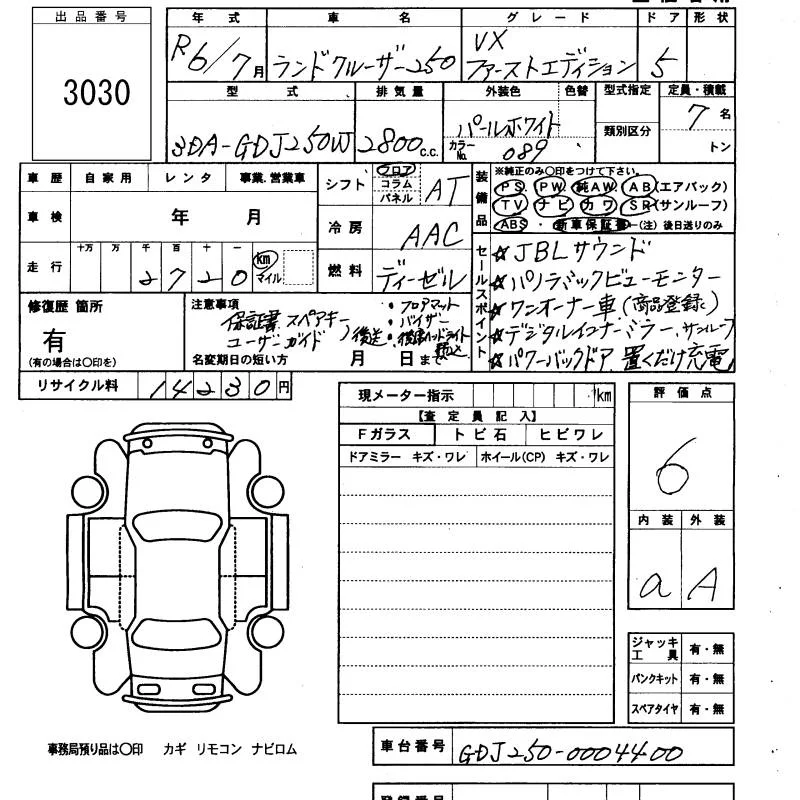 出品番号
3030
年式 車名 グレード ドア 形状
R6/7月 ランドクルーザー250 VX ファーストエディション 5
型式 排気量 外装色 色替 型式指定 定員・積載
3DA-GDJ250W 2800c.c. パールホワイト カラーNo. 089 類別区分 7名
トン
車歴 自家用 レンタ 事業.営業車
車検 年 月
走行 十万 万 千 百 十 一 km マイル
2720
シフト フロア コラム パネル AT
冷房 AAC
燃料 ディーゼル
装備品 ※純正のみ〇印をつけて下さい。
PS PW 純AW AB(エアバック)
TV ナビ カワ SR(サンルーフ)
ABS・新車保証書-(注) 後日送りのみ
セールスポイント
☆JBLサウンド
☆パノラミックビューモニター
☆ワンオーナー車(商品登録)
☆デジタルインナーミラー、サンルーフ
☆パワーバックドア、置くだけ充電
修復歴 箇所
有
(有の場合は〇印を)
注意事項
保証書 スペアキー
ユーザーガイド 後送
・フロアマット
・バイザー
名変期日の短い方 月 日まで
リサイクル料 14230円
現メーター指示 km
【査定員記入】
Fガラス トビ石 ヒビワレ
ドアミラー キズ・ワレ ホイール(CP) キズ・ワレ
評価点
6
内装 外装
a A
ジャッキ工具 有・無
パンクキット 有・無
スペアタイヤ 有・無
事務局預り品は〇印 カギ リモコン ナビロム
車台番号 GDJ250-0004400